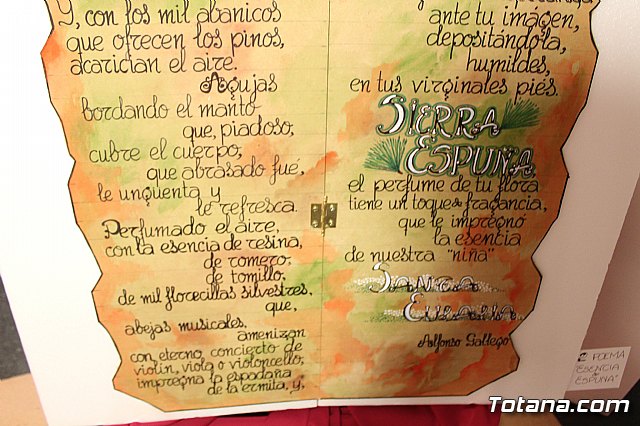 Y, con los mil abanicos
que ofrecen los pinos,
acarician el aire.
Agujas
bordando el manto
que, piadoso,
cubre el cuerpo,
que abrasado fué,
le unguenta y
le refresca.
Perfumado el aire,
con la esencia de resina,
de romero,
de tomillo,
de mil florecillas silvestres,
que,
abejas musicales,
amenizan
con eterno, concierto de
violín, viola o violoncello;
impregna la espadaña
de la ermita, y,
ante tu imagen,
depositándola,
humildes,
en tus virginales pies.
SIERRA
ESPUÑA
el perfume de tu flora
tiene un toque & fragancia,
que le impregnó
la esencia
de nuestra "niña"
SANTA
EULALIA
Alfonso Gallego
2 POEMA
"ESENCIA
de
ESPUÑA"
Totana.com